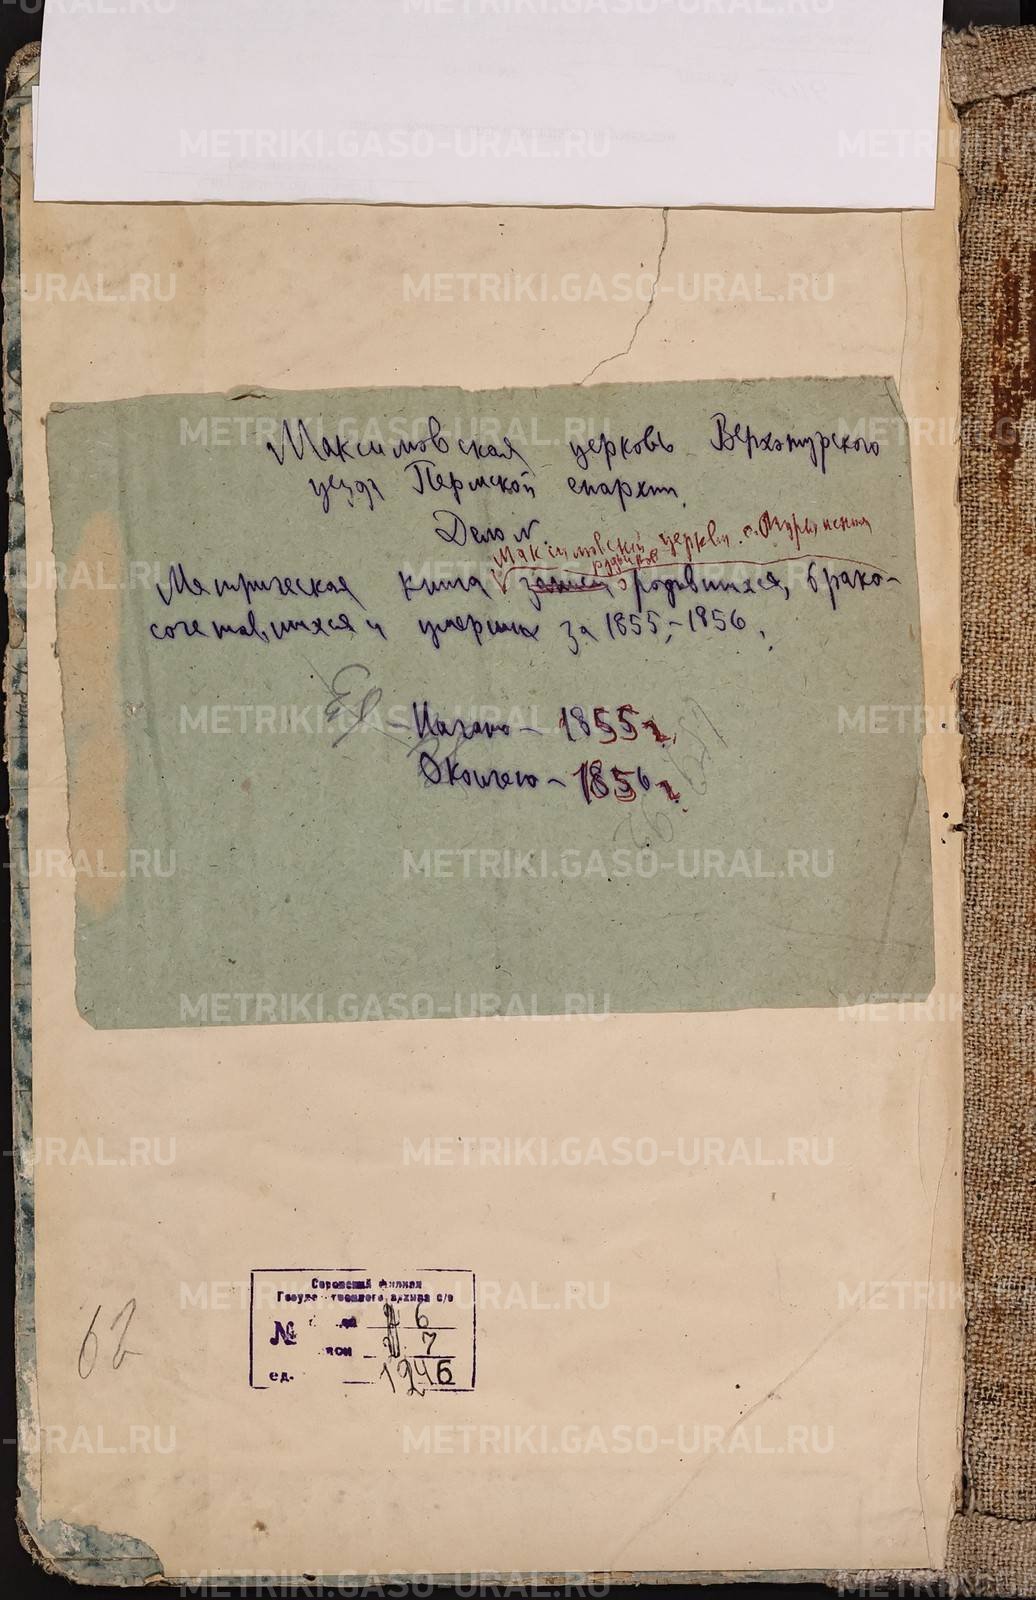 Максимовская церковь Верхотурского
уезда Пермской епархии.
Дело N.
Максимовской церкви с.
Метрическая книга записи о родившихся, брако-
сочетавшихся и умерших за 1855,-1856.
-Начато - 1855 г.
Окончено - 1856 г.
62
Серовский филиал
Государственного архива с/о
№ 6
7
ед. 1246
METRIKI.GASO-URAL.RU